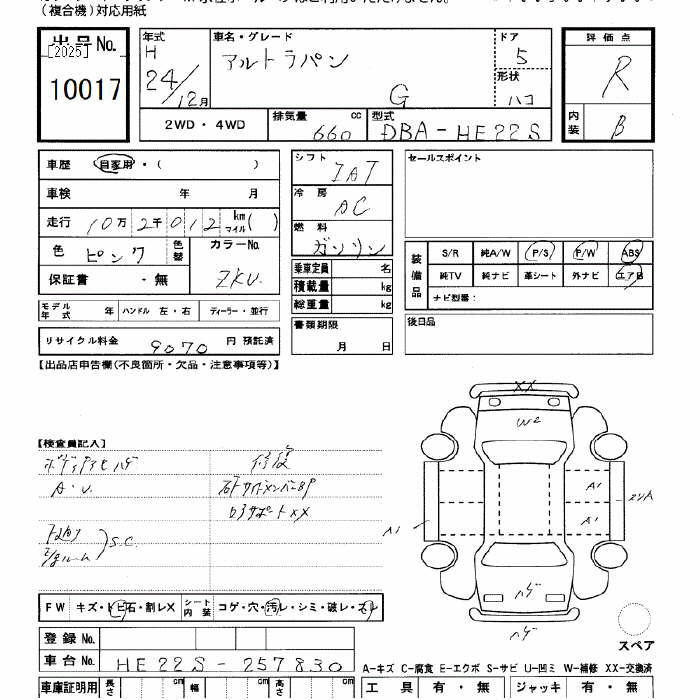 (複合機)対応用紙
出品No.
[2025]
10017
年式 H 24/12月
車名・グレード
アルトラパン
G
ドア 5
形状 ハコ
2WD・4WD
排気量 660 cc
型式 DBA-HE22S
評価点
R
内装 B
車歴 自家用・( )
車検 年 月
走行 10万2千012 km マイル( )
色 ピンク 色替
カラーNo. ZKU
保証書 ・無
モデル年式 年 ハンドル 左・右 ディーラー・並行
リサイクル料金 9070 円 預託済
シフト IAT
冷房 AC
燃料 ガソリン
乗車定員 名
積載量 kg
総重量 kg
書類期限
月 日
セールスポイント
装備品
S/R 純A/W P/S P/W ABS
純TV 純ナビ 革シート 外ナビ エアB
ナビ型番:
後日品
【出品店申告欄(不良箇所・欠品・注意事項等)】
【検査員記入】
A・U
修復
S.C.
XX
W2
A1
A1
A1
ハゲ
ハゲ
スペア
FW キズ・トビ石・割レX シート内装 コゲ・穴・汚レ・シミ・破レ・スレ
登録No.
車台No. HE22S-257830
A-キズ C-腐食 E-エクボ S-サビ U-凹ミ W-補修 XX-交換済
車庫証明用 長さ cm 幅 cm 高さ cm
工具 有・無 ジャッキ 有・無